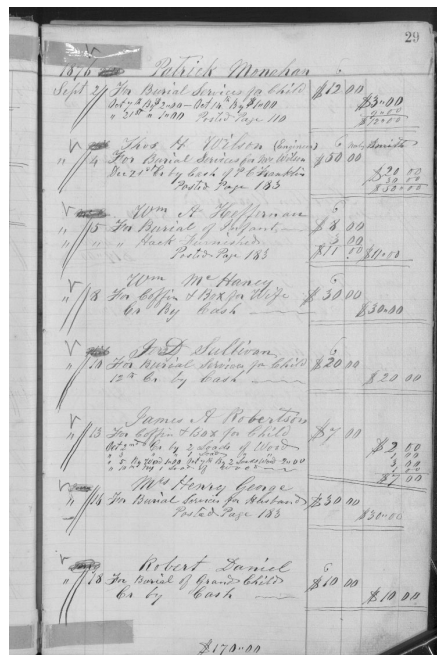 29
1876 Patrick Monehan 6
Sept 2 For Burial Services for Child $12 00
Oct 7th By 2=00 - Oct 14th By $1=00 $3=00
" 21st " 1=00 Posted Page 110
$12=00
Thos H Wilson (Engineer) 6 only Burial
" 4 For Burial Services for Mr Wilson $50 00
Dec 21st Cr by Cash of P C Franklin $20 00
Posted Page 183 30 00
$50=00
Wm A Heffernan 6
" 5 For Burial of Infant $8 00
" " " Hack Furnished 3 00
Posted Page 183 $11 00 $11=00
Wm McHaney 6
" 8 For Coffin & Box for Wife $30 00
Cr By Cash $30=00
Jo D Sullivan 6
" 10 For Burial Services for Child $20 00
12th Cr by Cash $20 00
James A Robertson
" 13 For Coffin & Box for Child $7 00
Oct 2nd Cr by 2 Loads of Wood $2 00
1 00
3 00
$7 00
Mrs Henry George
" 16 For Burial Services for Husband $30 00
Posted Page 183 $30=00
Robert Daniel 6
" 18 For Burial of Grand Child $10 00
Cr by Cash $10 00
$170=00